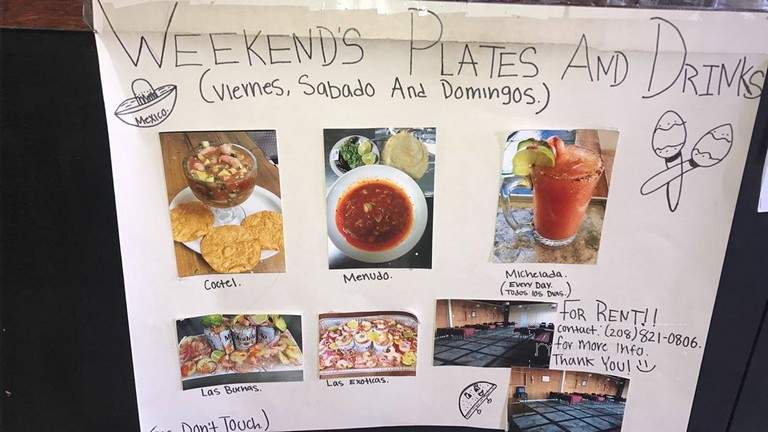 WEEKEND'S PLATES AND DRINKS
(Viernes, Sabado And Domingos.)
Mexico.
Coctel.
Menudo.
Michelada.
(Every Day.
Todos los Dias.)
For Rent!!
contact: (208) 821-0806.
for more Info.
Thank You!
Las Buchas.
Las Exoticas.
Don't Touch)